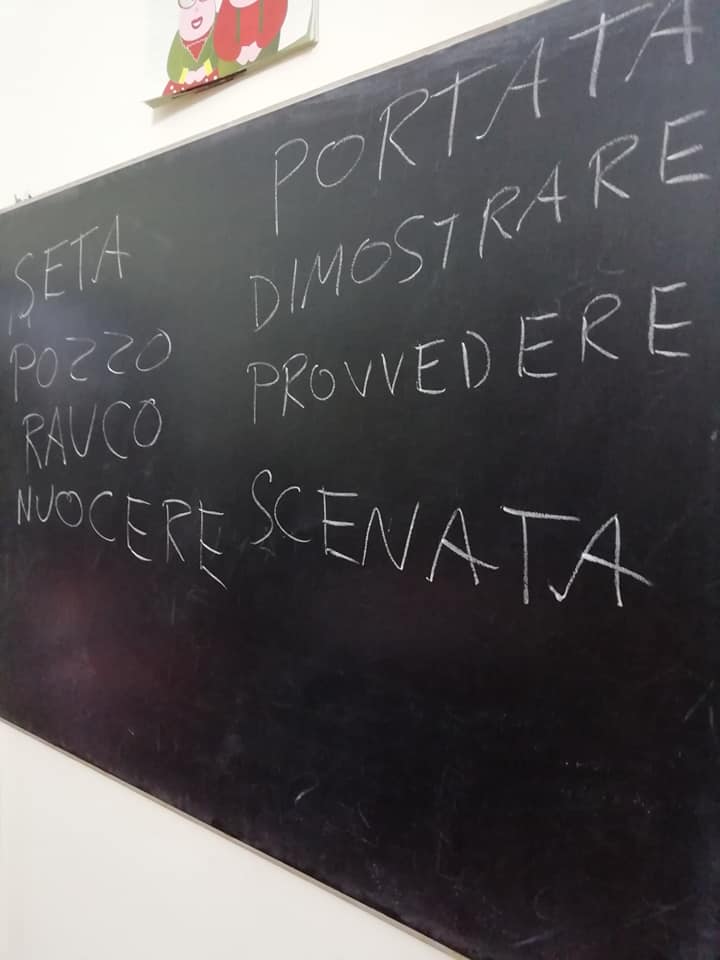 SETA
POZZO
RAUCO
NUOCERE
PORTATA
DIMOSTRARE
PROVVEDERE
SCENATA